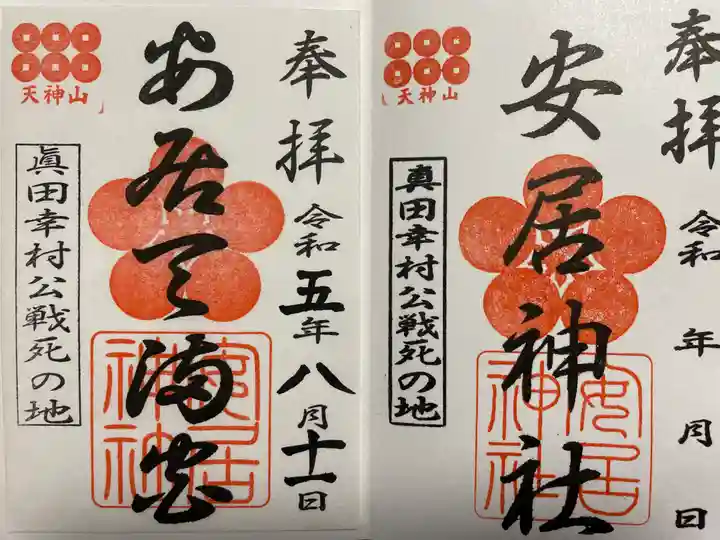 奉拝
令和五年八月十一日
安居天満宮
天神山
眞田幸村公戦死の地
安居神社
奉拝
令和 年 月 日
安居神社
天神山
真田幸村公戦死の地
安居神社